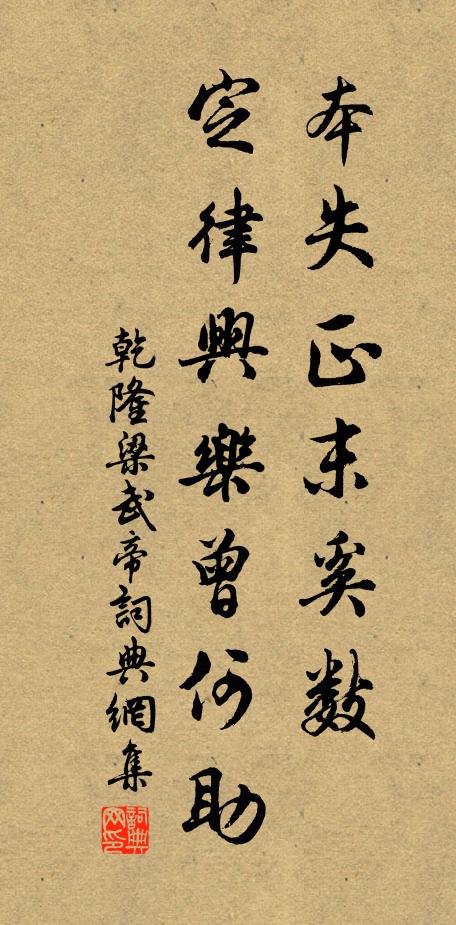 本失正末奚數
定律興樂曾何助
乾隆梁武帝詞典網集
詞典網印